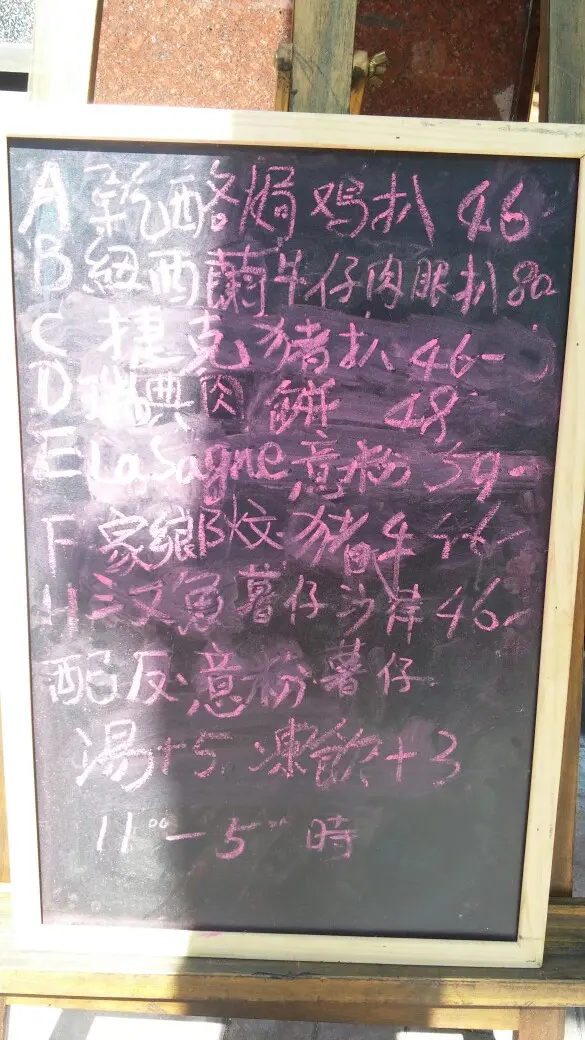 A 乳酪焗鸡扒 46
B 紐西蘭牛仔肉眼扒 80
C 捷克猪扒 46-
D 瑞典肉餅 48
E Lasagne 意粉 59-
F 家鄉炆猪手
H 三文魚薯仔沙律 46-
配反.意粉.薯仔
湯+5. 凍飲+3
11⁰⁰-5⁰⁰ 時